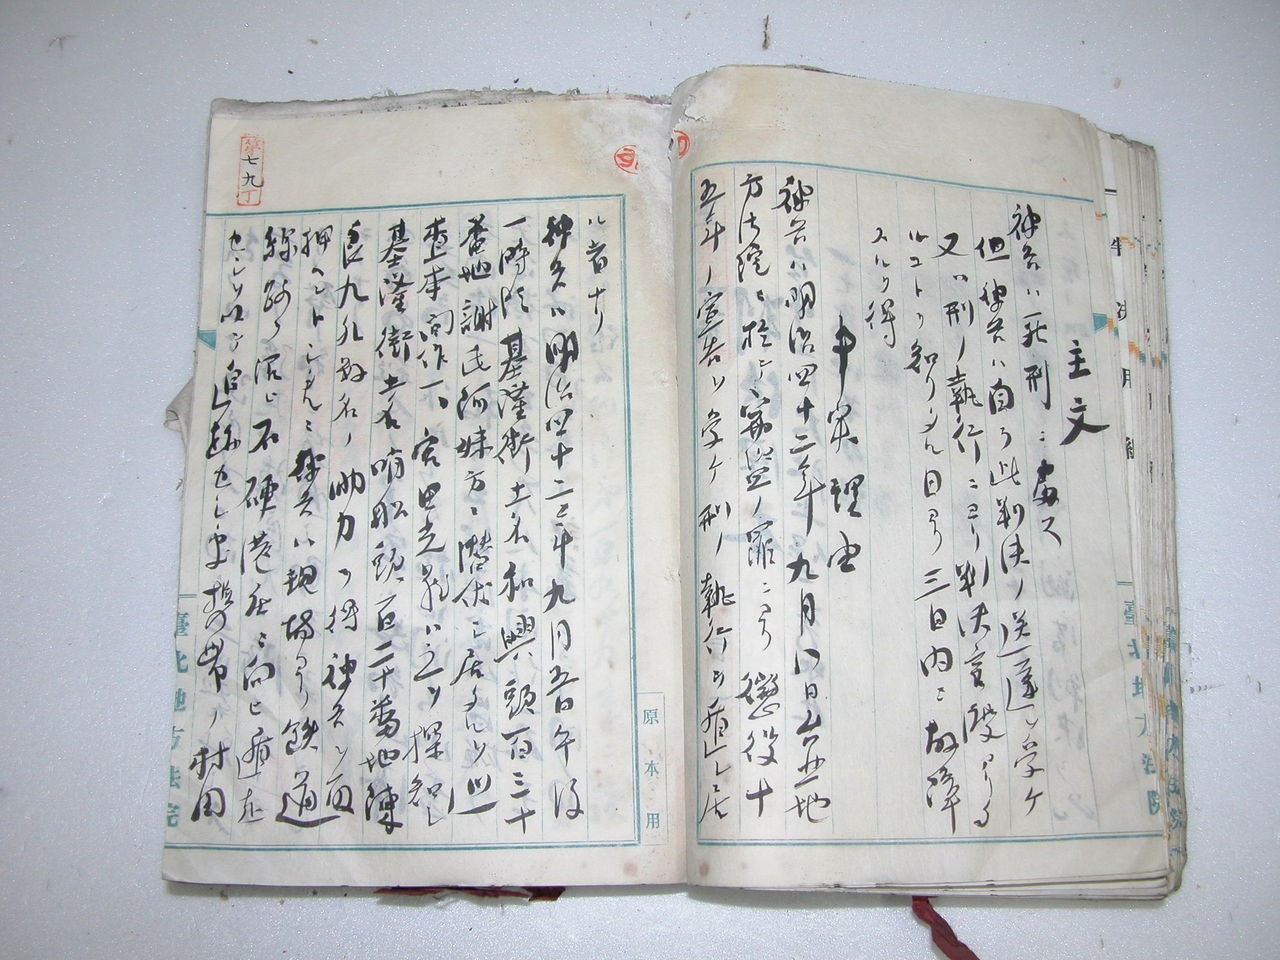 主文
被告ハ死刑ニ處ス
但被告ハ自ラ此判決ノ送達ヲ受ケ
又ハ刑ノ執行ニヨリ判決言渡アリタ
ルコトヲ知リタル日ヨリ三日内ニ故障
スルヲ得
事実理由
被告ハ明治四十二年九月八日台北地
方法院ニ於テ窃盗ノ罪ニヨリ懲役十
五年ノ宣告ヲ受ケ刑ノ執行ヲ遁レ居
ル者ナリ
被告ハ明治四十二年九月五日午后
一時頃基隆街土名和興頭百三十
番地謝氏阿妹方ニ潜伏シ居タルヲ巡
査本向作一、宮田光蔵ハ之ヲ探知シ
基隆街土名哨船頭百二十番地陳
良九外数名ノ助力ヲ得被告ヲ取
押ヘントシタルニ被告ハ現場ヨリ鉄道
線路ヲ沿ヒ石硬港庄ニ向ヒ遁走
セシヲ以テ追跡セシ
村田
第七九丁
原本用
臺北地方法院
臺北地方法院